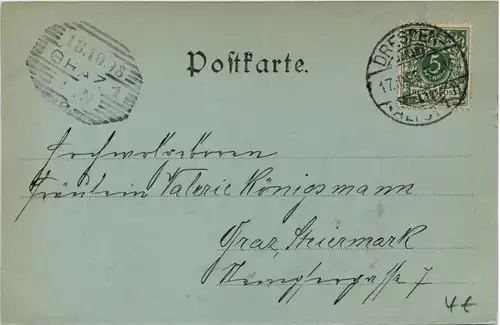 18.10.98
GRAZ 1
Postkarte.
DRESDEN
17.
ALTST.
5
Hochwolgeboren
Fräulein Valerie Königsmann
Graz, Steiermark
7
4€